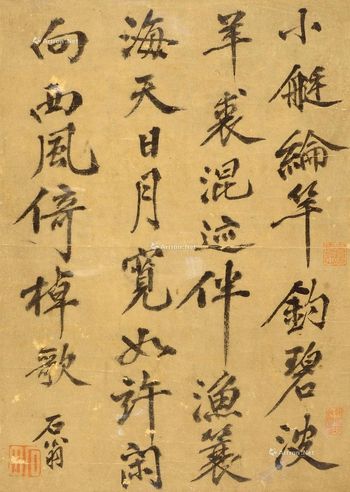 小艇綸竿釣碧波
羊裘混迹伴漁蓑
海天日月寬如許閑
向西風倚棹歌
石翁